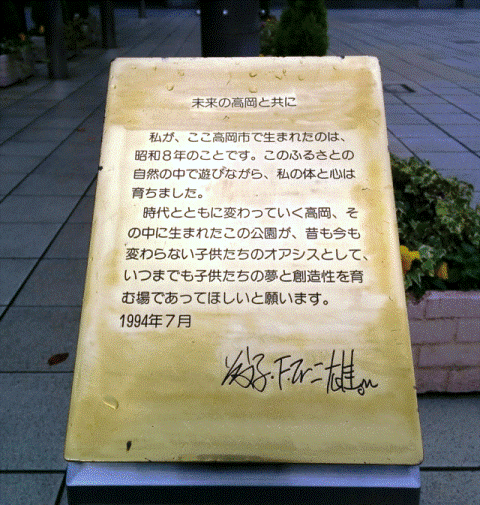 未来の高岡と共に
私が、ここ高岡市で生まれたのは、
昭和8年のことです。このふるさとの
自然の中で遊びながら、私の体と心は
育ちました。
時代とともに変わっていく高岡、そ
の中に生まれたこの公園が、昔も今も
変わらない子供たちのオアシスとして、
いつまでも子供たちの夢と創造性を育
む場であってほしいと願います。
1994年7月